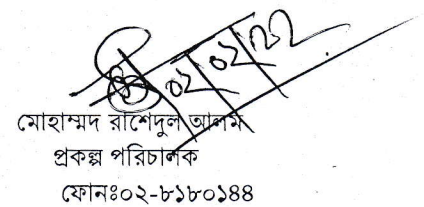 ০২ ০২ ২২
মোহাম্মদ রাশেদুল আলম
প্রকল্প পরিচালক
ফোনঃ০২-৮১৮০১৪৪